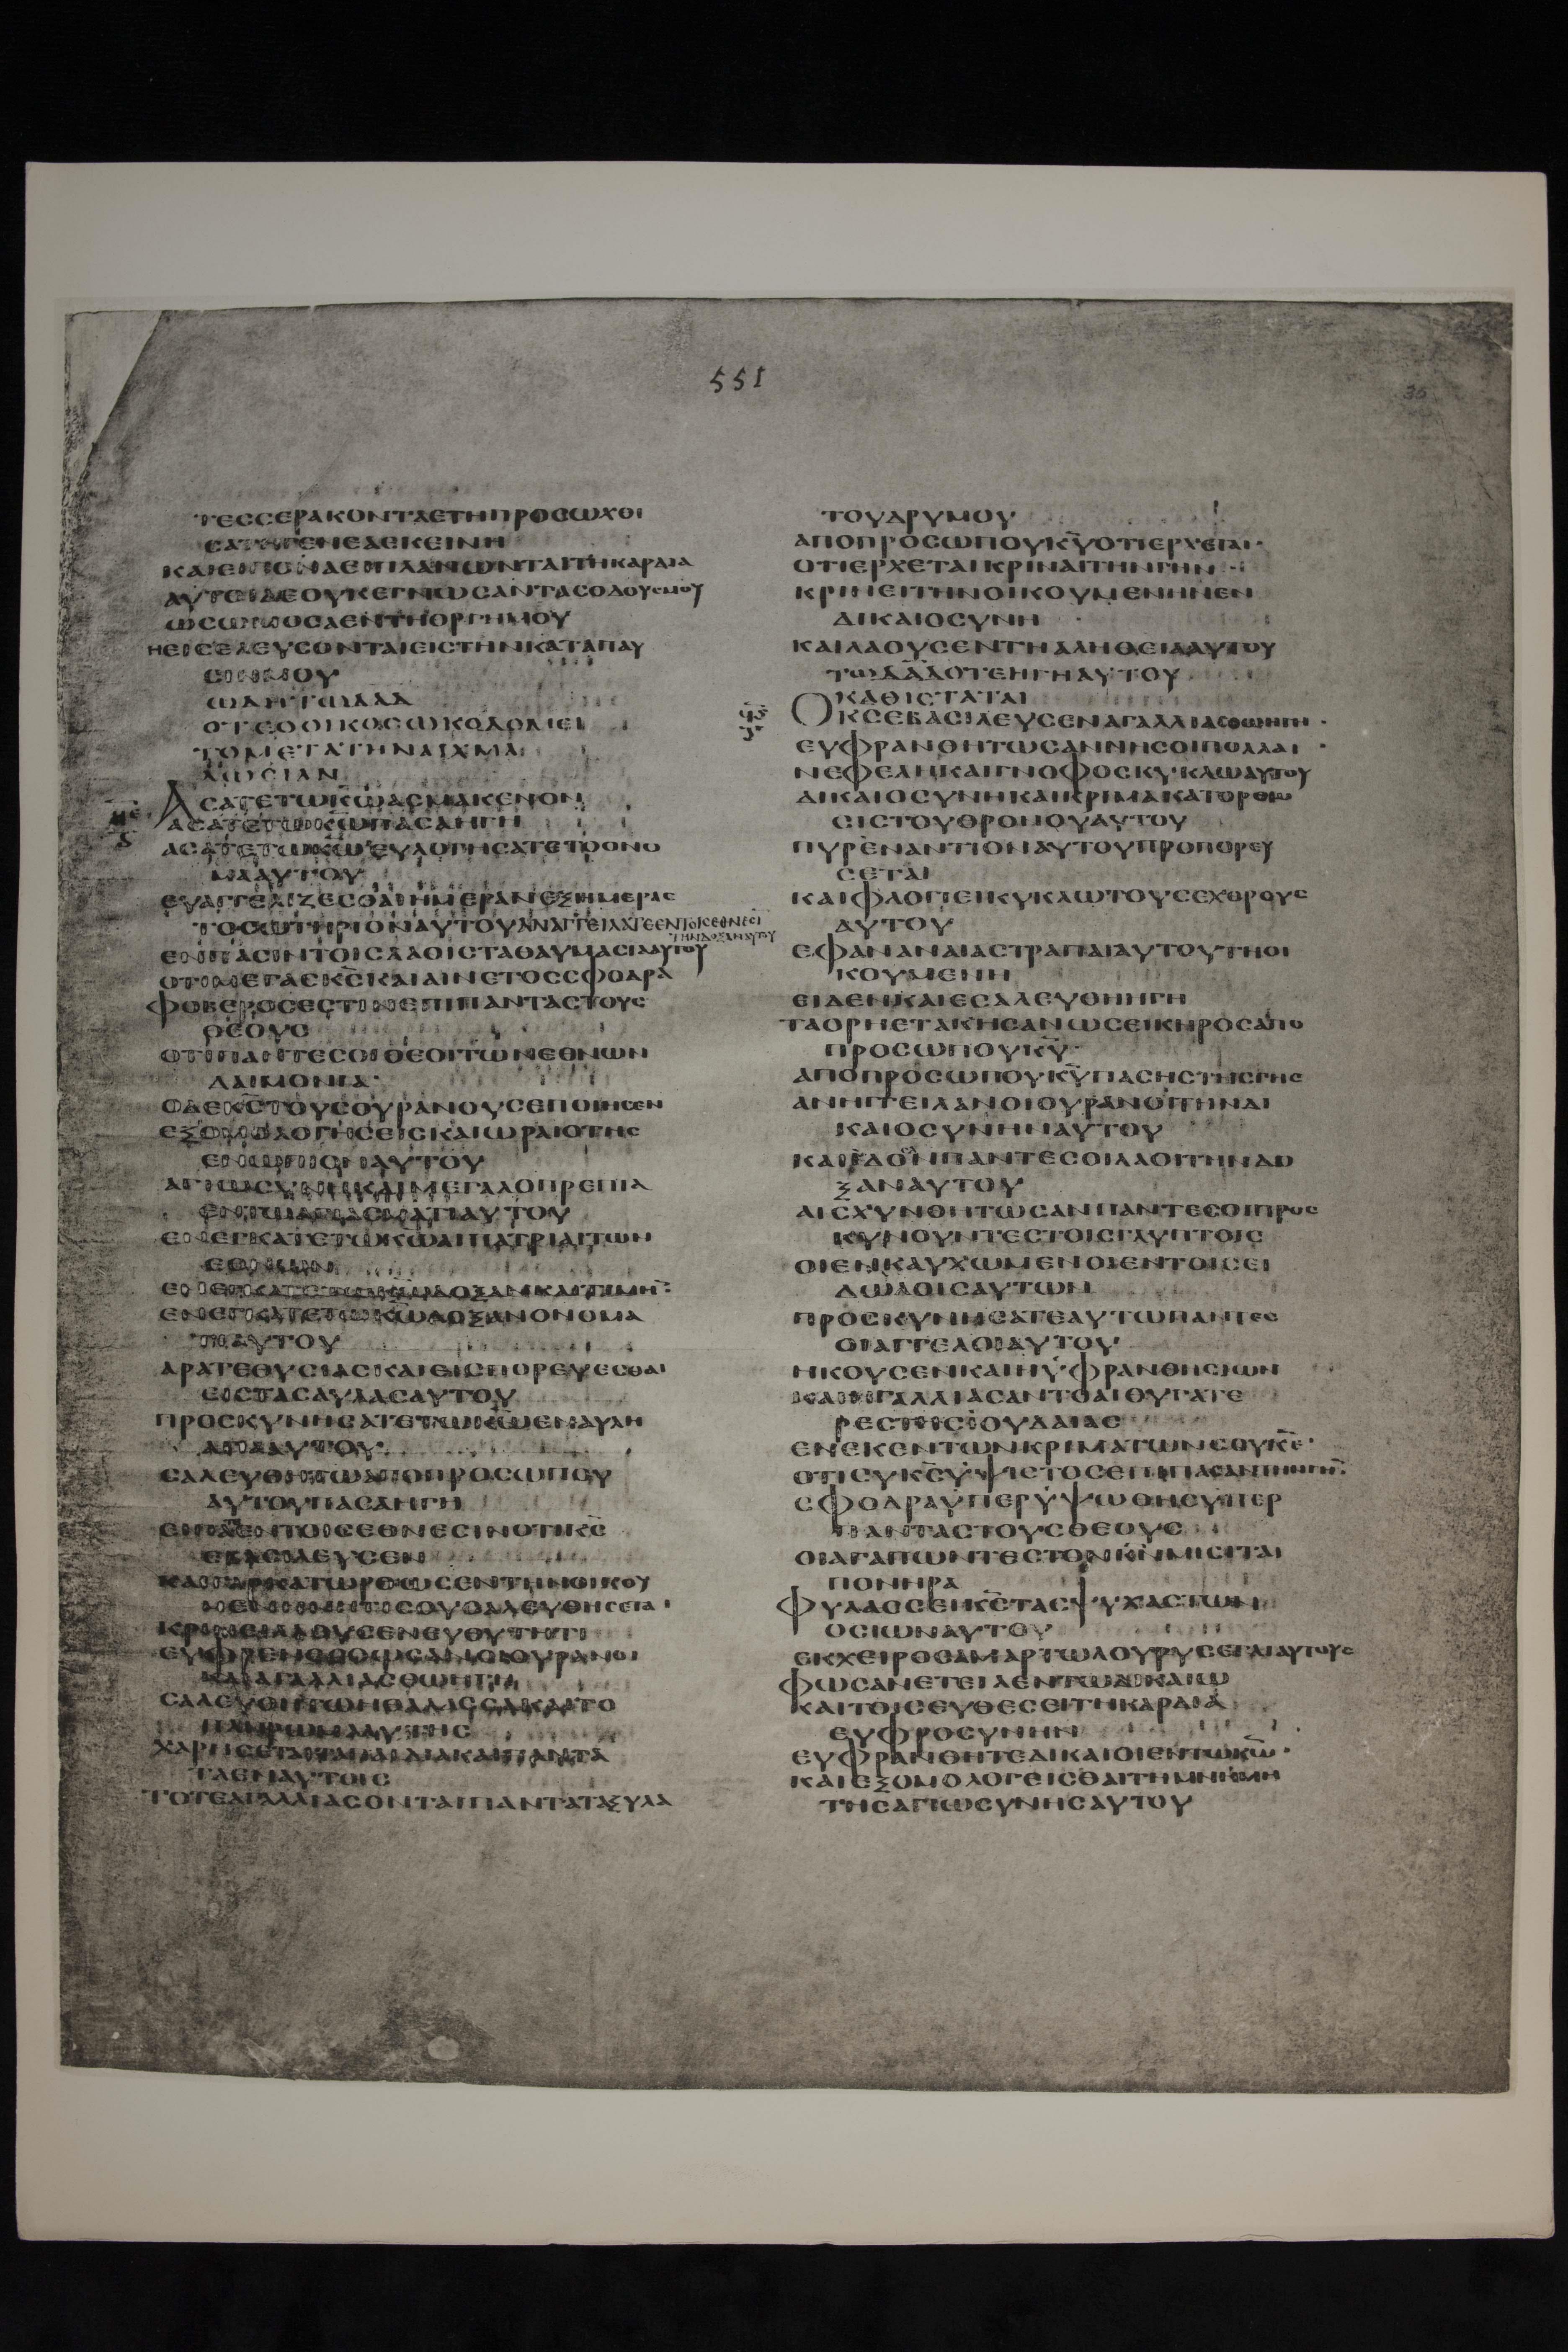 551
35
ΤΕССЕΡΑΚΟΝΤΑΕΤΗΠΡΟСΩΧΘΙ
СΑΤΗΓΕΝΕΑΕΚΕΙΝΗ
ΑΥΤΟΙΔΕΟΥΚΕΓΝΩСΑΝΤΑСΟΔΟΥСΜΟΥ
ΩСΩΜΟСΑΕΝΤΗΟΡΓΗΜΟΥ
ΕΙСΕΛΕΥСΟΝΤΑΙΕΙСΤΗΝΚΑΤΑΠΑΥ
СΙΝΜΟΥ
ΩΔΗΤΩΔΑΔ
ΟΤΕΟΟΙΚΟСΩΚΟΔΟΜΕΙ
ΤΟΜΕΤΑΤΗΝΑΙΧΜΑ
ΛΩСΙΑΝ
ΑСΑΤΕΤΩΚΩΑСΜΑΚΕΝΟΝ
ΑСΑΤΕΤΩΚΩΠΑСΑΗΓΗ
ΑСΑΤΕΤΩΚΩΕΥΛΟΓΗСΑΤΕΤΟΟΝΟ
ΜΑΑΥΤΟΥ
ΕΥΑΓΓΕΛΙΖΕСΘΑΙΗΜΕΡΑΝΕΞΗΜΕΡΑС
ΤΟСΩΤΗΡΙΟΝΑΥΤΟΥ
ΤΗΝΔΟΞΑΝΑΥΤΟΥ
ΕΝΠΑСΙΝΤΟΙСΛΑΟΙСΤΑΘΑΥΜΑСΙΑΑΥΤΟΥ
ΟΤΙΜΕΓΑСΚСΚΑΙΑΙΝΕΤΟССΦΟΔΡΑ
ΦΟΒΕΡΟСΕСΤΙΝΕΠΙΠΑΝΤΑСΤΟΥС
ΘΕΟΥС
ΟΤΙΠΑΝΤΕСΟΙΘΕΟΙΤΩΝΕΘΝΩΝ
ΔΑΙΜΟΝΙΑ
ΟΔΕΚСΤΟΥСΟΥΡΑΝΟΥСΕΠΟΙΗСΕΝ
ΕΞΟΜΟΛΟΓΗСΕΙСΚΑΙΩΡΑΙΟΤΗС
ΕΝΩΠΙΟΝΑΥΤΟΥ
ΑΓΙΩСΥΝΗΚΑΙΜΕΓΑΛΟΠΡΕΠΙΑ
ΕΝΕΓΚΑΤΕΤΩΚΩΑΙΠΑΤΡΙΑΙΤΩΝ
ΕΘΝΩΝ
ΕΝΕΓΚΑΤΕΤΩΚΩΔΟΞΑΝΟΝΟΜΑ
ΤΙΑΥΤΟΥ
ΑΡΑΤΕΘΥСΙΑСΚΑΙΕΙСΠΟΡΕΥΕСΘΑΙ
ΕΙСΤΑСΑΥΛΑСΑΥΤΟΥ
ΠΡΟСΚΥΝΗСΑΤΕΤΩΚΩΕΝΑΥΛΗ
ΑΓΙΑΑΥΤΟΥ
СΑΛΕΥΘΗΤΩΑΠΟΠΡΟСΩΠΟΥ
ΑΥΤΟΥΠΑСΑΗΓΗ
ΕΙΠΑΤΕΝΤΟΙСΕΘΝΕСΙΝΟΤΙΚС
ΕΒΑСΙΛΕΥСΕΝ
ΚΑΙΓΑΡΚΑΤΩΡΘΩСΕΝΤΗΝΟΙΚΟΥ
ΚΡΙΝΕΙΛΑΟΥСΕΝΕΥΘΥΤΗΤΙ
ΚΑΙΑΓΑΛΛΙΑСΘΩΗΓΗ
СΑΛΕΥΘΗΤΩΗΘΑΛΑССΑΚΑΙΤΟ
ΠΛΗΡΩΜΑΑΥΤΗС
ΧΑΡΗСΕΤΑΙΤΑΠΑΙΔΙΑΚΑΙΠΑΝΤΑ
ΤΑΕΝΑΥΤΟΙС
ΤΟΤΕΑΓΑΛΛΙΑСΟΝΤΑΙΠΑΝΤΑΤΑΞΥΛΑ
ΤΟΥΔΡΥΜΟΥ
ΑΠΟΠΡΟСΩΠΟΥΚΥΟΤΙΕΡΧΕΤΑΙ
ΟΤΙΕΡΧΕΤΑΙΚΡΙΝΑΙΤΗΝΓΗΝ
ΚΡΙΝΕΙΤΗΝΟΙΚΟΥΜΕΝΗΝΕΝ
ΔΙΚΑΙΟСΥΝΗ
ΚΑΙΛΑΟΥСΕΝΤΗΑΛΗΘΕΙΑΑΥΤΟΥ
ΤΩΔΑΔΟΤΕΗΓΗΑΥΤΟΥ
ΚΑΘΙСΤΑΤΑΙ
ΟΚСΕΒΑСΙΛΕΥСΕΝΑΓΑΛΛΙΑСΘΩΗΓΗ
ΕΥΦΡΑΝΘΗΤΩСΑΝΝΗСΟΙΠΟΛΛΑΙ
ΝΕΦΕΛΗΚΑΙΓΝΟΦΟСΚΥΚΛΩΑΥΤΟΥ
ΔΙΚΑΙΟСΥΝΗΚΑΙΚΡΙΜΑΚΑΤΟΡΘΩ
СΙСΤΟΥΘΡΟΝΟΥΑΥΤΟΥ
ΠΥΡΕΝΑΝΤΙΟΝΑΥΤΟΥΠΡΟΠΟΡΕΥ
СΕΤΑΙ
ΚΑΙΦΛΟΓΙΕΙΚΥΚΛΩΤΟΥСΕΧΘΡΟΥС
ΑΥΤΟΥ
ΕΦΑΝΑΝΑΙΑСΤΡΑΠΑΙΑΥΤΟΥΤΗΟΙ
ΚΟΥΜΕΝΗ
ΕΙΔΕΝΚΑΙΕСΑΛΕΥΘΗΗΓΗ
ΤΑΟΡΗΕΤΑΚΗСΑΝΩСΕΙΚΗΡΟСΑΠΟ
ΠΡΟСΩΠΟΥΚΥ
ΑΠΟΠΡΟСΩΠΟΥΚΥΠΑСΗСΤΗСΓΗС
ΑΝΗΓΓΕΙΛΑΝΟΙΟΥΡΑΝΟΙΤΗΝΔΙ
ΚΑΙΟСΥΝΗΝΑΥΤΟΥ
ΚΑΙΕΙΔΟΝΠΑΝΤΕСΟΙΛΑΟΙΤΗΝΔΟ
ΞΑΝΑΥΤΟΥ
ΑΙСΧΥΝΘΗΤΩСΑΝΠΑΝΤΕСΟΙΠΡΟС
ΚΥΝΟΥΝΤΕСΤΟΙСΓΛΥΠΤΟΙС
ΟΙΕΝΚΑΥΧΩΜΕΝΟΙΕΝΤΟΙСΕΙ
ΔΩΛΟΙСΑΥΤΩΝ
ΠΡΟСΚΥΝΗСΑΤΕΑΥΤΩΠΑΝΤΕС
ΟΙΑΓΓΕΛΟΙΑΥΤΟΥ
ΗΚΟΥСΕΝΚΑΙΗΥΦΡΑΝΘΗСΙΩΝ
ΚΑΙΗΓΑΛΛΙΑСΑΝΤΟΑΙΘΥΓΑΤΕ
ΡΕСΤΗСΙΟΥΔΑΙΑС
ΕΝΕΚΕΝΤΩΝΚΡΙΜΑΤΩΝСΟΥΚΕ
ΟΤΙСΥΚСΥΨΙСΤΟСΕΠΙΠΑСΑΝΤΗΝΓΗ
СΦΟΔΡΑΥΠΕΡΥΨΩΘΗСΥΠΕΡ
ΠΑΝΤΑСΤΟΥСΘΕΟΥС
ΟΙΑΓΑΠΩΝΤΕСΤΟΝΚΝΜΙСΙΤΑΙ
ΠΟΝΗΡΑ
ΦΥΛΑССΕΙΚСΤΑСΨΥΧΑСΤΩΝ
ΟСΙΩΝΑΥΤΟΥ
ΕΚΧΕΙΡΟСΑΜΑΡΤΩΛΟΥΡΥСΕΤΑΙΑΥΤΟΥС
ΦΩСΑΝΕΤΕΙΛΕΝΤΩΔΙΚΑΙΩ
ΚΑΙΤΟΙСΕΥΘΕСΕΙΤΗΚΑΡΔΙΑ
ΕΥΦΡΟСΥΝΗΝ
ΕΥΦΡΑΝΘΗΤΕΔΙΚΑΙΟΙΕΝΤΩΚΩ
ΚΑΙΕΞΟΜΟΛΟΓΕΙСΘΑΙΤΗΜΝΗΜΗ
ΤΗСΑΓΙΩСΥΝΗСΑΥΤΟΥ